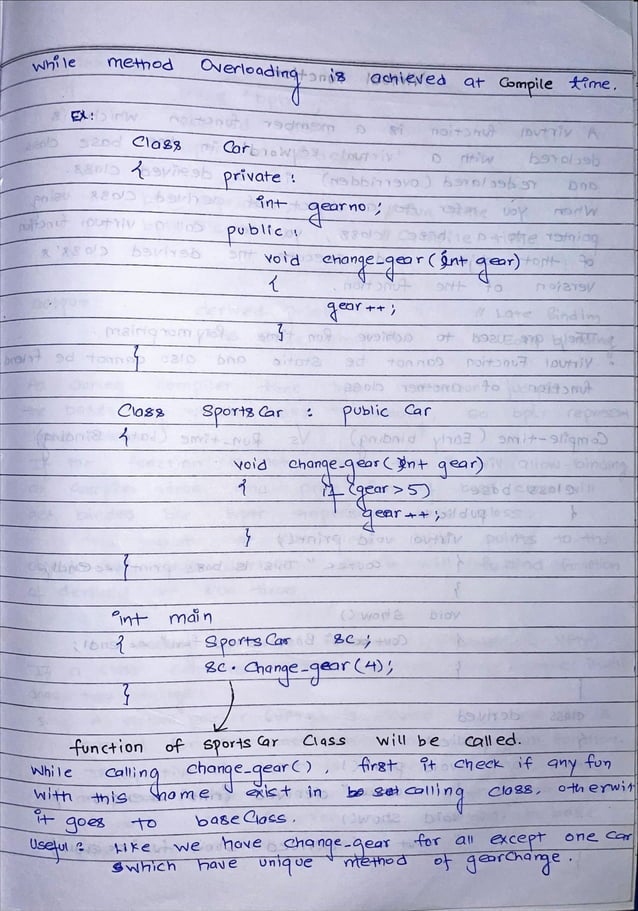 While method Overloading is achieved at Compile time.
Ex:
Class Car
{ private :
int gearno ;
public :
void change_gear ( int gear)
{
gear ++ ;
}
}
Class Sports Car : public Car
{
void change_gear ( int gear)
{ if (gear > 5)
gear ++ ;
}
}
int main
{ Sports Car sc ;
sc . Change_gear (4) ;
}
function of Sports Car Class will be called.
While calling change_gear ( ) , first it check if any fun
with this name exist in calling class. otherwis
it goes to base Class .
Useful : Like we have change_gear for all except one car
which have unique method of gearchange .